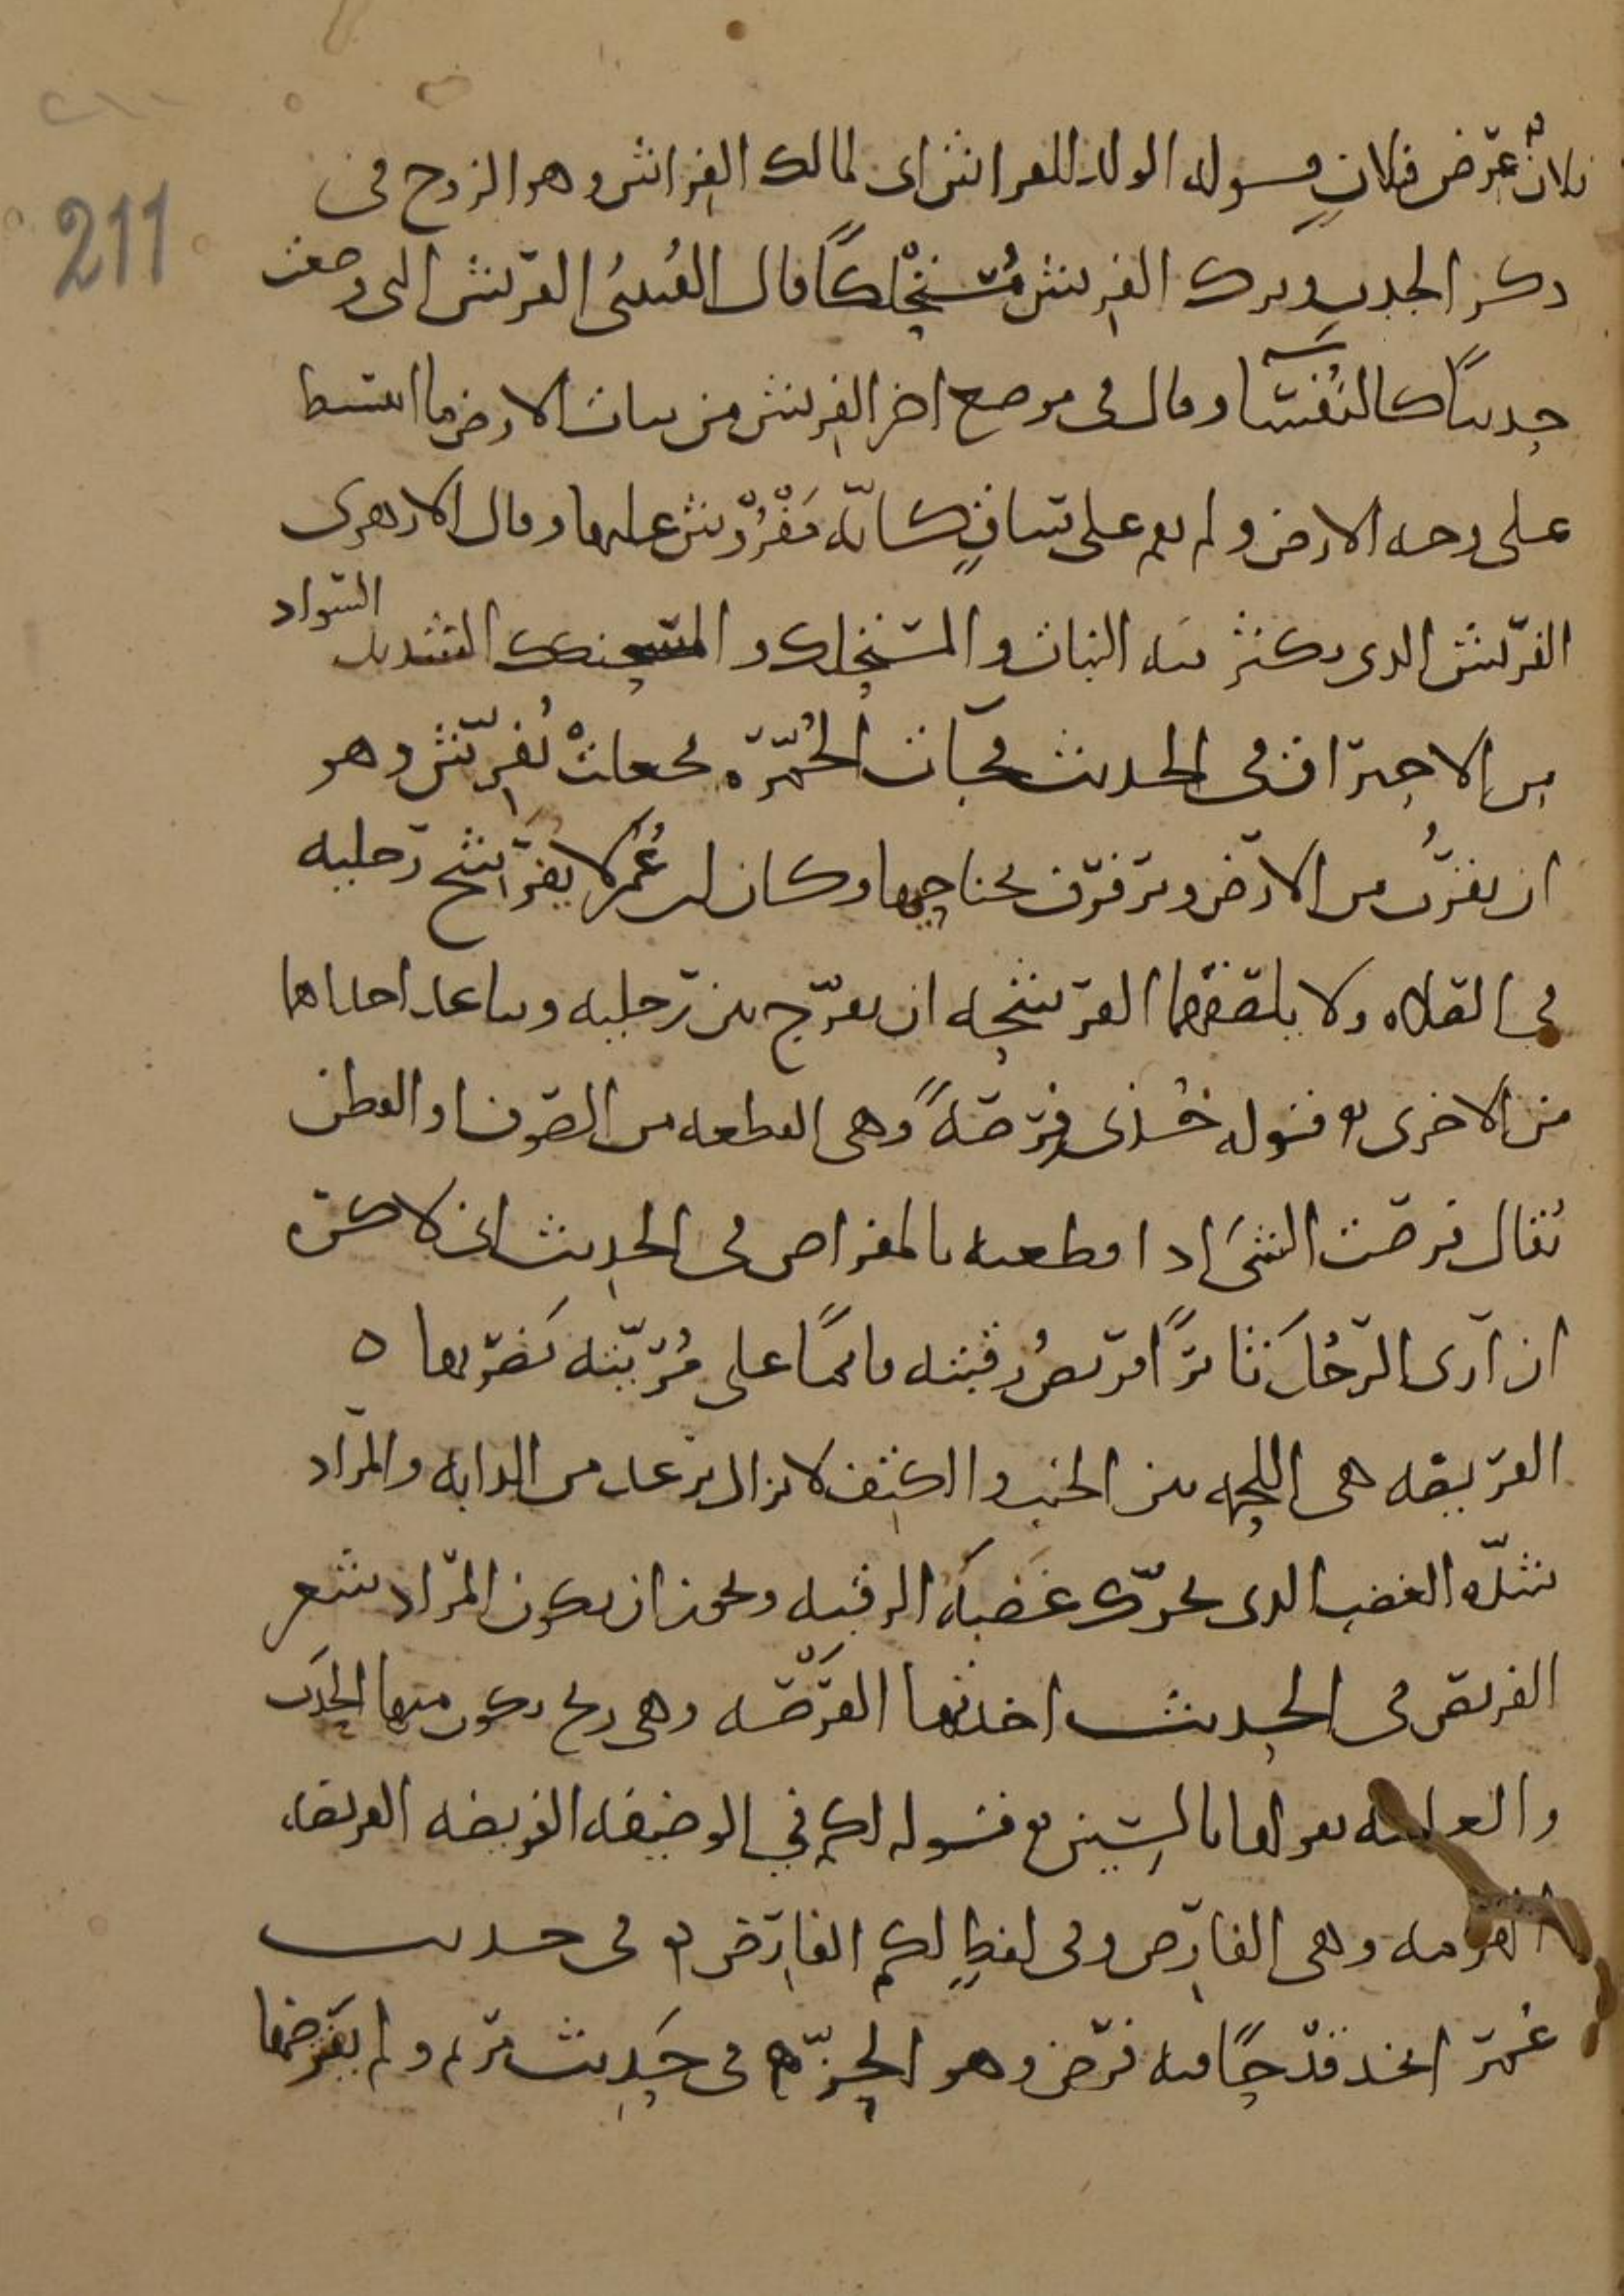 ٢١١
211
فلانٌ عرض فلان قوله الولد للفراش اى لمالك الفراش وهو الزوج فى
ذكر الجدب وترك الفريش مُستحلكًا قال القُتيبىُ الفريش التى وضعت
حديثًا كالنفساء وقال فى موضع اخر الفريش من نبات الارض ما انبسط
على وجه الارض ولم يقم على ساقٍ كانّه مَفْرُوْش عليها وقال الازهرى
الفريش الذى يكثر به النبات والمستحلك والمستحنكك الشديد السواد
من الاحتراق فى الحديث فجآت الحُمّرة فجعلتْ تُفرّش وهو
ان تقرُب من الارض وترفرف بجناحيها وكان ابن عُمر لا يفرشح رجليه
فى الصلاه ولا يلصقهما الفرشحه ان يفرّج بين رجليه ويباعد احداهما
من الاخرى قوله خُذى فِرصةً وهى القطعه من الصوف او القطن
يُقال فرصت الشىَ اذا قطعته بالمفراص فى الحديث انى لاكره
ان ارى الرّجُلَ ثائرًا فريصُ رقبته قائمًا على مُرَيّته يَضربها ه
الفريصه هى اللحمه بين الجنب والكتف لا تزال ترعد من الدابه والمراد
شدّه الغضب الذى يحرّك عَصَبَه الرقبه ويجوز ان يكون المراد شعر
الفريص فى الحديث اخذتها الفَرْصَه وهى ريح يكون منها الحدَب
والعامه تقولها بالسين قوله لكم فى الوظيفه الفريضه الفريضه
الهرمه وهى الفارض وفى لفظٍ لكم الفارض فى حديث
عمر اتخذ قدحًا فيه فرض وهو الحزّ فى حَديث مريم ولم يفترضها